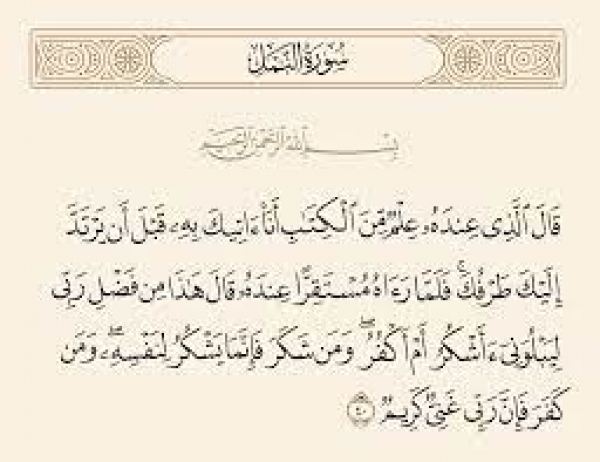 سُورَةُ النَّمْلِ
بِسْمِ اللَّهِ الرَّحْمَٰنِ الرَّحِيمِ
قَالَ ٱلَّذِى عِندَهُۥ عِلْمٌ مِّنَ ٱلْكِتَٰبِ أَنَا۠ ءَاتِيكَ بِهِۦ قَبْلَ أَن يَرْتَدَّ
إِلَيْكَ طَرْفُكَ ۚ فَلَمَّا رَءَاهُ مُسْتَقِرًّا عِندَهُۥ قَالَ هَٰذَا مِن فَضْلِ رَبِّى
لِيَبْلُوَنِىٓ ءَأَشْكُرُ أَمْ أَكْفُرُ ۖ وَمَن شَكَرَ فَإِنَّمَا يَشْكُرُ لِنَفْسِهِۦ ۖ وَمَن
كَفَرَ فَإِنَّ رَبِّى غَنِىٌّ كَرِيمٌ ٤٠